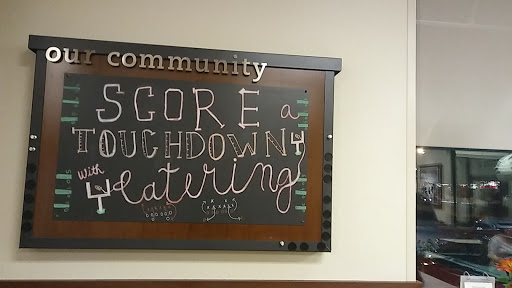 our community
SCORE a
TOUCHDOWN
with
Catering